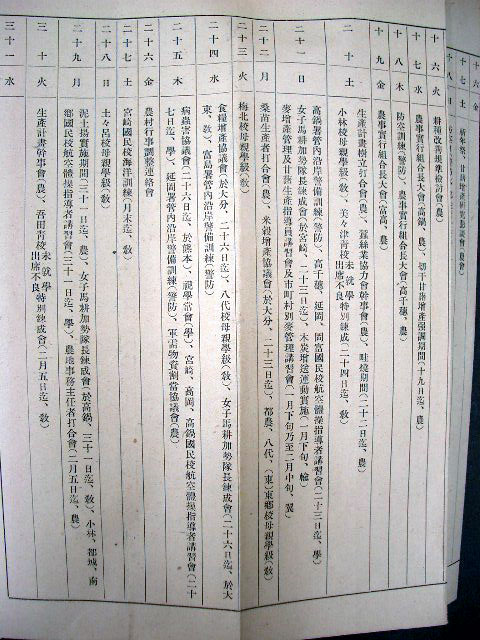 十六 火
耕種改善規準檢討會(農)
十七 水
農事實行組合長大會(高鍋、農)、切干甘藷增產强調期間(十九日迄、農)
十八 木
防空訓練(警防)、農事實行組合長大會(高千穗、農)
十九 金
農事實行組合長大會(富高、農)
二十 土
生產計畫樹立打合會(農)、蠶絲業協力會幹事會(農)、畦燒期間(二十二日迄、農)
小林校母親學級(敎)、美々津青校未就學出席不良特別鍊成(二十四日迄、敎)
二十一 日
高鍋署管內沿岸警備訓練(警防)、高千穗、延岡、岡富國民校航空體操指導者講習會(二十三日迄、學)
女子馬耕加勢隊長鍊成會(於宮崎、二十三日迄)、木炭增送運動實施(一月下旬、輸)
麥增產管理及甘藷生產指導員講習會及市町村別麥管理講習會(一月下旬乃至二月中旬、翼)
二十二 月
桑苗生產者打合會(農)、米穀增產協議會(於大分、二十三日迄)、都農、八代、(東)東鄕校母親學級(敎)
二十三 火
梅北校母親學級(敎)
二十四 水
食糧增產協議會(於大分、二十六日迄)、八代校母親學級(敎)、女子馬耕加勢隊長鍊成會(二十六日迄、於大
東、敎)、富高署管內沿岸警備訓練(警防)
二十五 木
病蟲害協議會(二十六日迄、於熊本)、視學常會(學)、宮崎、高岡、高鍋國民校航空體操指導者講習會(二十
七日迄、學)、延岡署管內沿岸警備訓練(警防)、軍需物資割當協議會(農)
二十六 金
農村行事調整連絡會
二十七 土
宮崎國民校海洋訓練(月末迄、學)
二十八 日
土々呂校母親學級(敎)
二十九 月
泥土揚實施期間(三十一日迄、農)、女子馬耕加勢隊長鍊成會(於高鍋、三十一日迄、敎)、小林、都城、南
鄕國民校航空體操指導者講習會(三十一日迄、學)、農地事務主任者打合會(二月五日迄、農)
三十 火
生產計畫幹事會(農)、吾田青校未就學出席不良特別鍊成會(二月五日迄、敎)
三十一 水